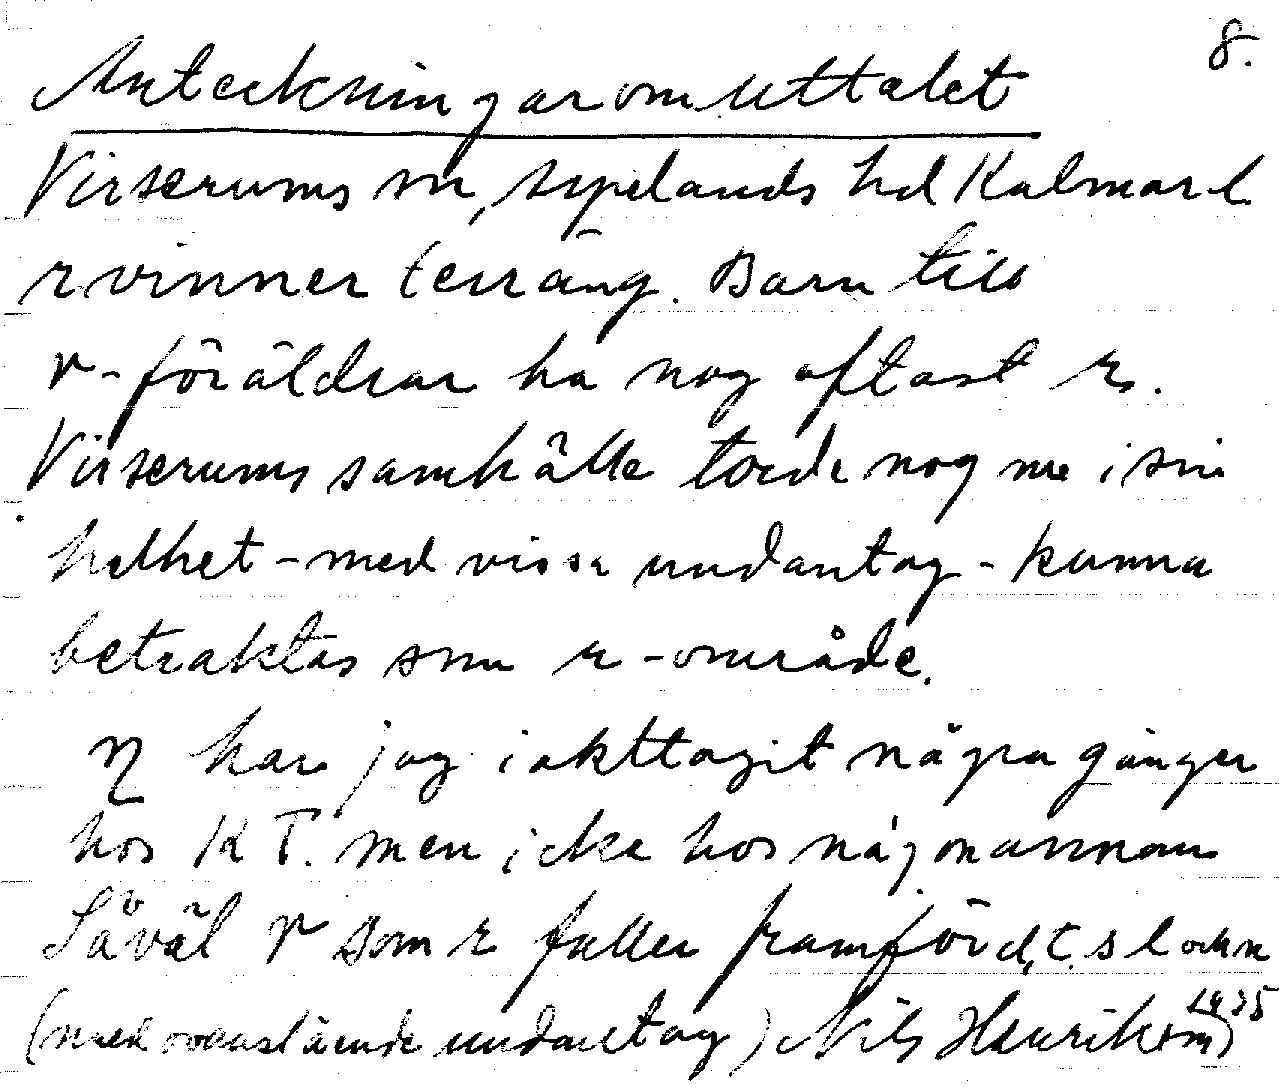 8.
Anteckningar om uttalet
Virserums sn, Aspelands hd Kalmar l
r vinner terräng. Barn till
r-föräldrar ha nog oftast r.
Virserums samhälle torde nog nu i sin
helhet - med vissa undantag - kunna
betraktas som r-område.
har jag iakttagit några gånger
hos K T. men icke hos någon annan
Såväl r som r faller framför d, t. s l och n
(med ovanstående undantag) Nils Henrikson) 1935